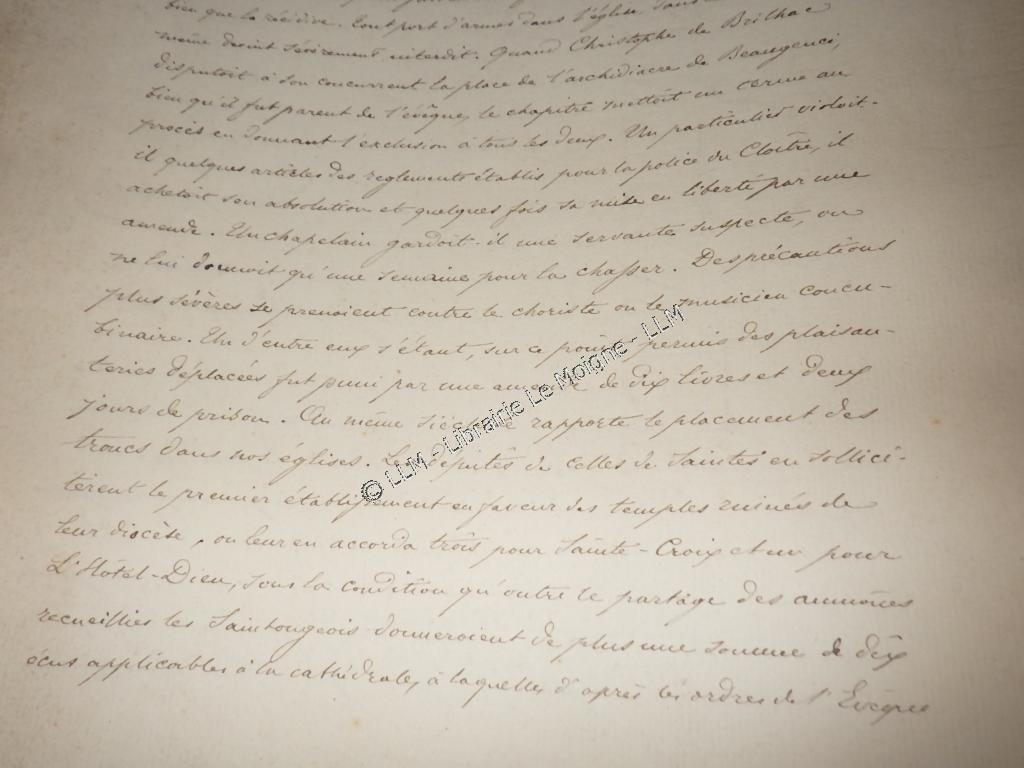 bien que la récidive. Tout port d'armes dans l'église
même devint sévèrement interdit. Quand Christophe de Brilhac
disputoit à son concurrent la place de l'archidiacre de Beaugenci,
bien qu'il fut parent de l'évêque, le chapitre mettoit un terme au
procès en donnant l'exclusion à tous les deux. Un particulier violoit-
il quelques articles des reglements établis pour la police du Cloître, il
achetoit son absolution et quelques fois sa mise en liberté par une
amende. Un chapelain gardoit-il une servante suspecte, on
ne lui donnoit qu'une semaine pour la chasser. Des précautions
plus sévères se prenoient contre le choriste ou le musicien concu-
binaire. Un d'entre eux s'étant, sur ce point, permis des plaisan-
teries déplacées fut puni par une amende de dix livres et deux
jours de prison. Au même siècle se rapporte le placement des
troncs dans nos églises. Les députés de celles de Saintes en sollici-
tèrent le premier établissement en faveur des temples ruinés de
leur diocèse, on leur en accorda trois pour Sainte-Croix et un pour
L'Hôtel-Dieu, sous la condition qu'outre le partage des aumônes
recueillies les Saintongeois donneroient de plus une somme de dix
écus applicables à la cathédrale, à laquelle d'après les ordres de l'Evêque
© LLM - Librairie Le Moigne - LLM